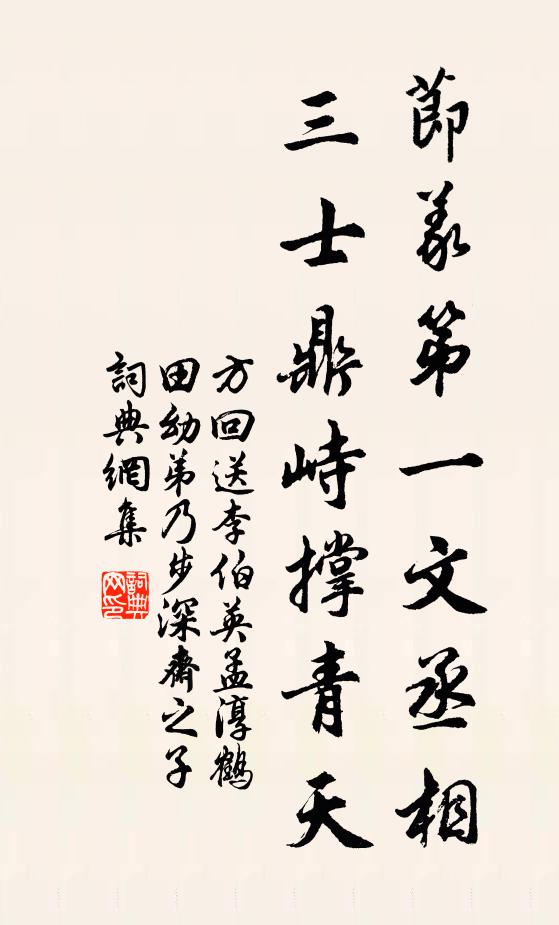 節義第一文丞相
三士鼎峙撐青天
方回送李伯英孟淳鶴
田幼弟乃步深齋之子
詞典網集
詞典網印